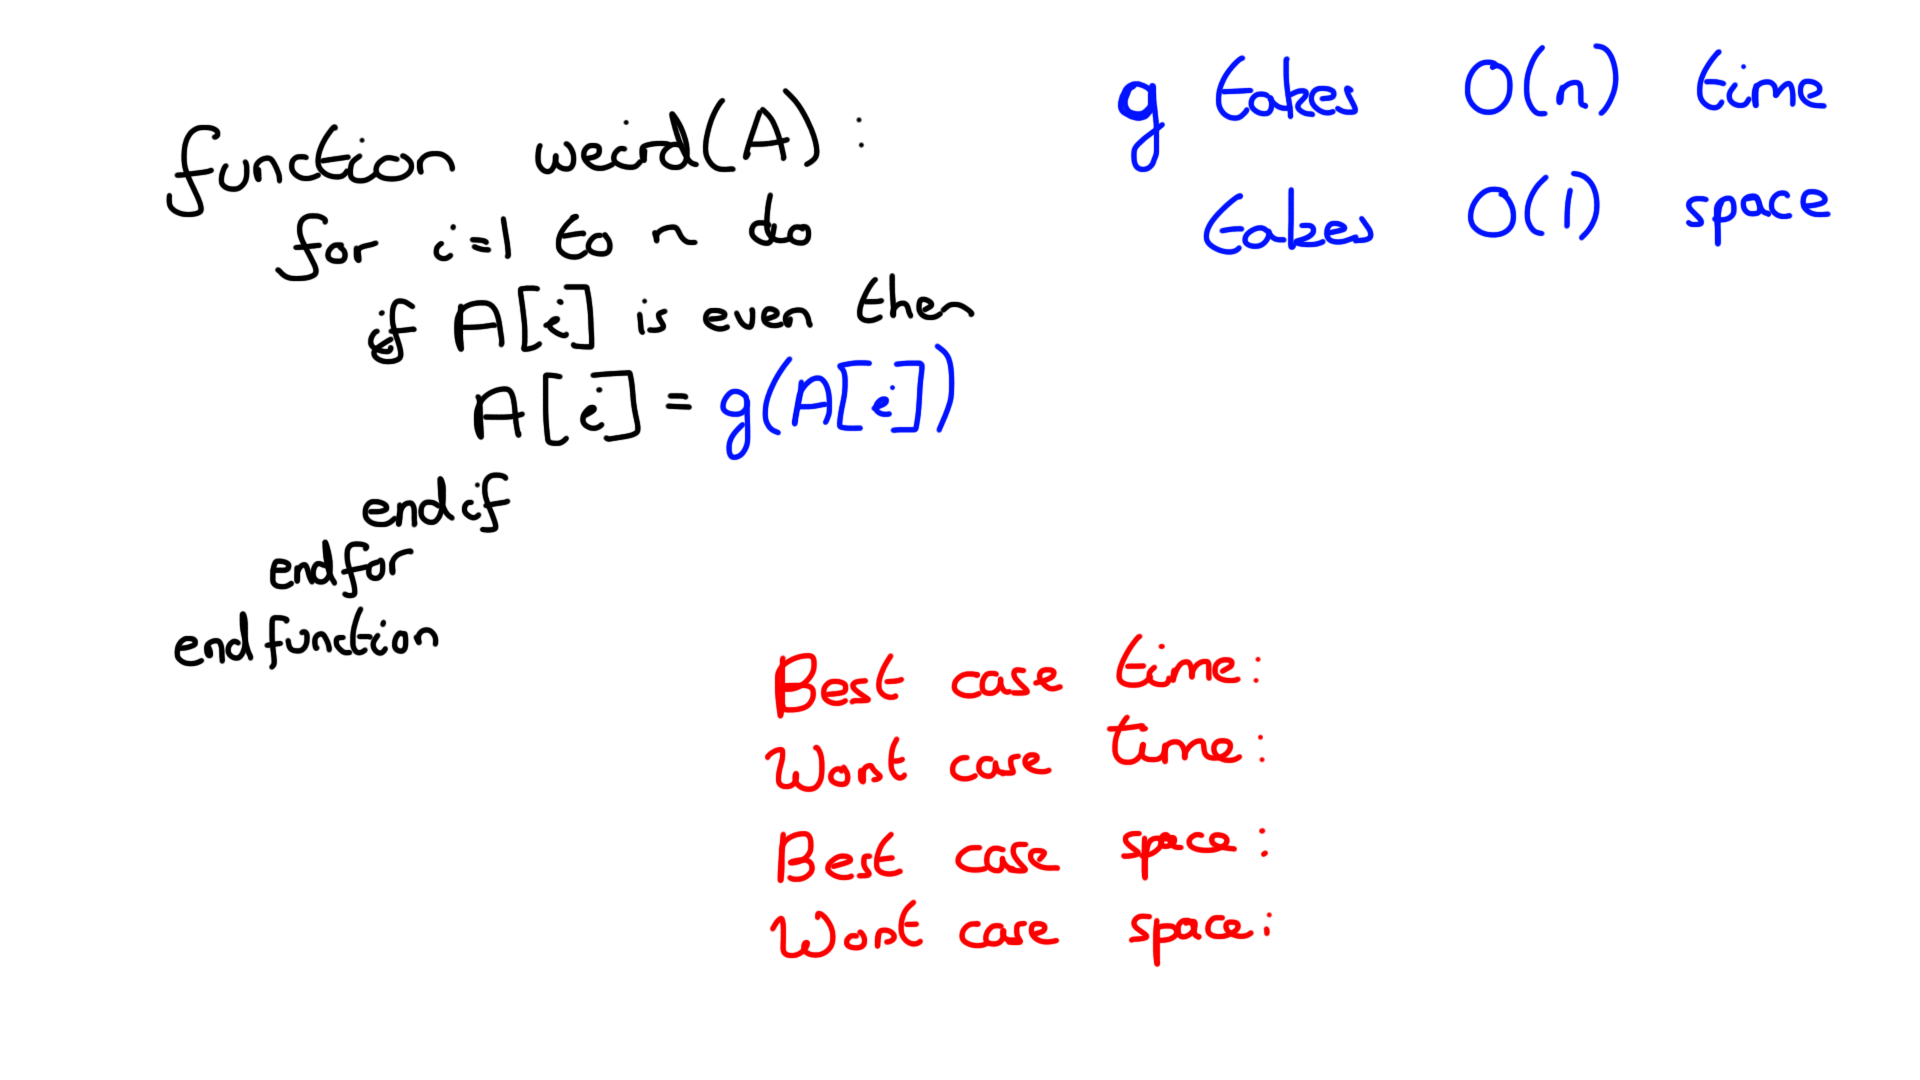 function weird(A):
for i=1 to n do
if A[i] is even then
A[i] = g(A[i])
endif
endfor
endfunction
g takes O(n) time
takes O(1) space
Best case time:
Worst case time:
Best case space:
Worst case space: